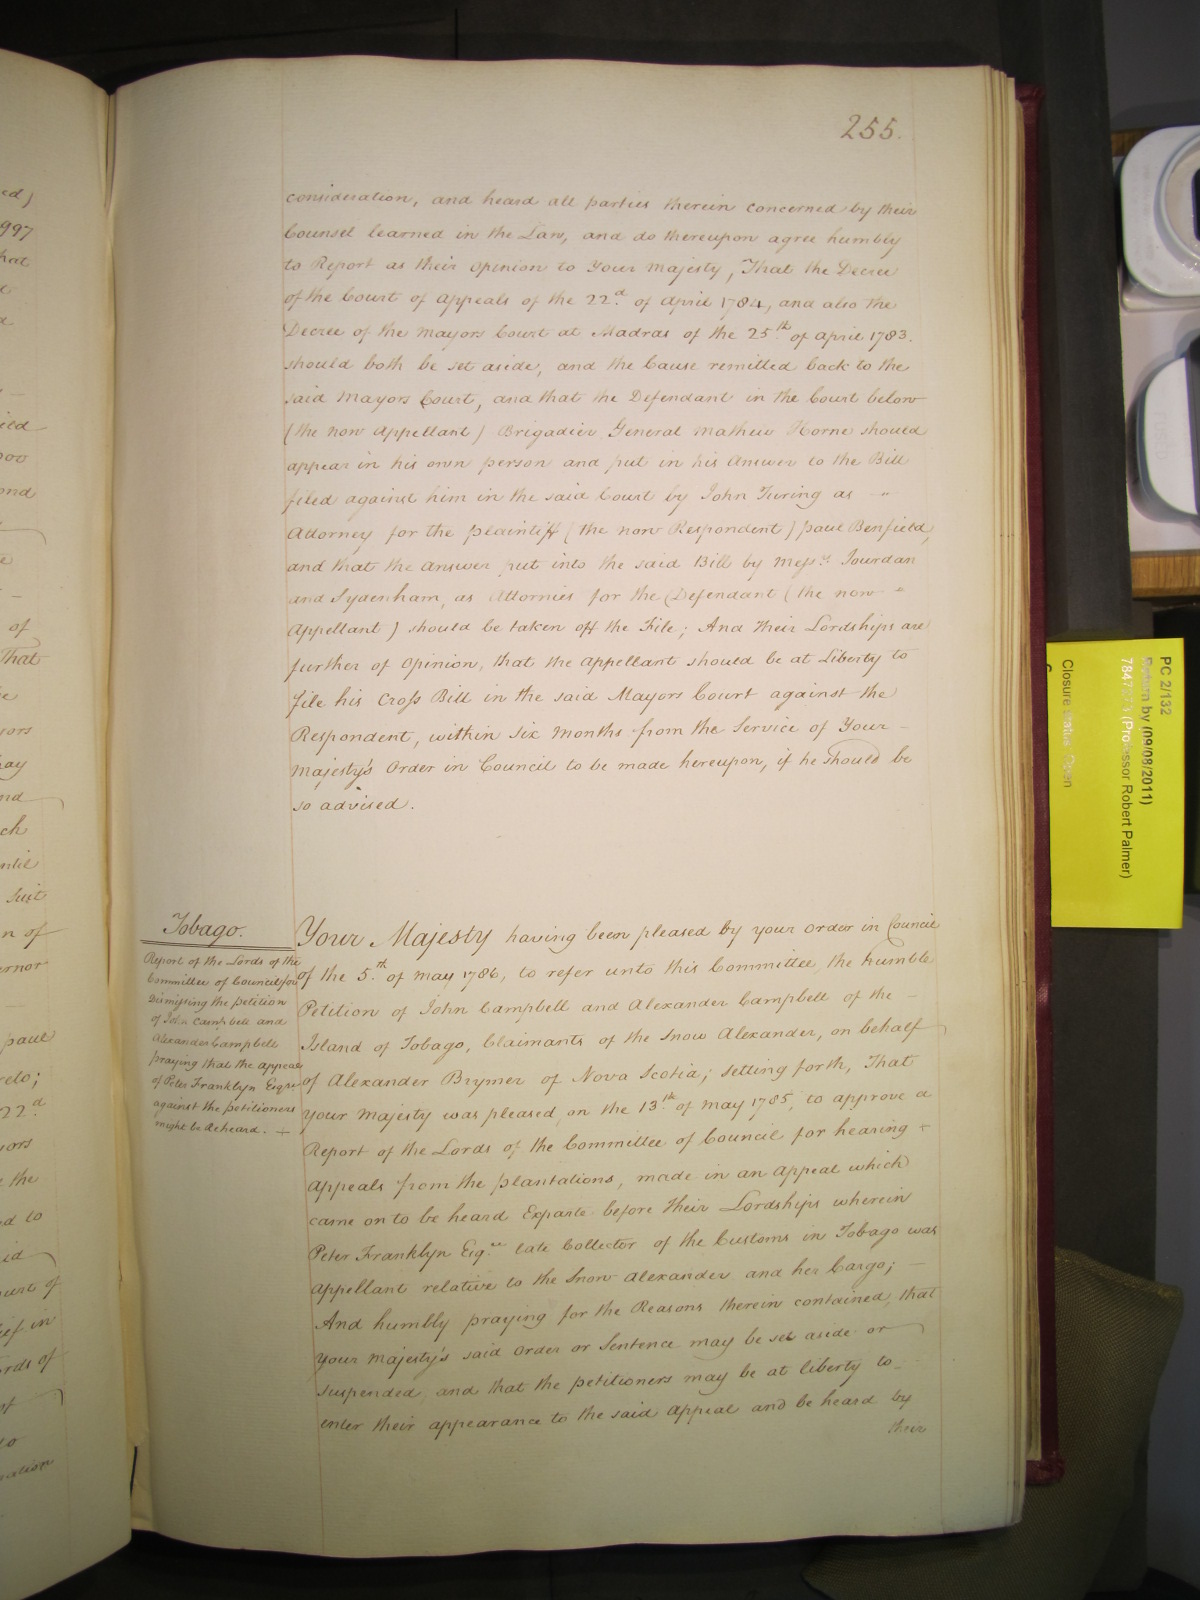 255.
consideration, and heard all parties therein concerned by their
Counsel learned in the Law, and do thereupon agree humbly
to Report as their opinion to Your Majesty, That the Decree
of the Court of Appeals of the 22.d of April 1784, and also the
Decree of the Mayors Court at Madras of the 25.th of April 1783.
should both be set aside, and the Cause remitted back to the
said Mayors Court, and that the Defendant in the Court below
(the now Appellant) Brigadier General Mathew Horne should
appear in his own person and put in his Answer to the Bill
filed against him in the said Court by John Turing as
Attorney for the Plaintiff (the now Respondent) Paul Benfield,
and that the Answer put into the said Bill by Mess.rs Jourdan
and Sydenham, as Attornies for the Defendant (the now
Appellant) should be taken off the File; And their Lordships are
further of Opinion, that the Appellant should be at Liberty to
file his Cross Bill in the said Mayors Court against the
Respondent, within Six Months from the Service of Your
Majesty's Order in Council to be made hereupon, if he should be
so advised.
Tobago.
Report of the Lords of the
Committee of Council for
Dismissing the Petition
of John Campbell and
Alexander Campbell
praying that the Appeal
of Peter Franklyn Esqre
against the petitioners
might be Reheard.
Your Majesty having been pleased by your Order in Council
of the 5.th of May 1786, to refer unto this Committee, the humble
Petition of John Campbell and Alexander Campbell of the
Island of Tobago, Claimants of the Snow Alexander, on behalf
of Alexander Brymer of Nova Scotia; setting forth, That
your Majesty was pleased, on the 13.th of May 1785, to approve a
Report of the Lords of the Committee of Council for hearing
Appeals from the plantations, made in an Appeal which
came on to be heard Exparte before their Lordships wherein
Peter Franklyn Esq.re late Collector of the Customs in Tobago was
Appellant relative to the Snow Alexander and her Cargo;
And humbly praying for the Reasons therein contained, that
Your Majesty's said Order or Sentence may be set aside or
suspended, and that the petitioners may be at liberty to
enter their appearance to the said Appeal and be heard by
their
PC 2/132
Return by (09/08/2011)
(Professor Robert Palmer)
Closure status: Open
997
of
That
ors
nd
ch
Suit
n of
ernor
paul
22.d
the
d to
of
ief in
rds of